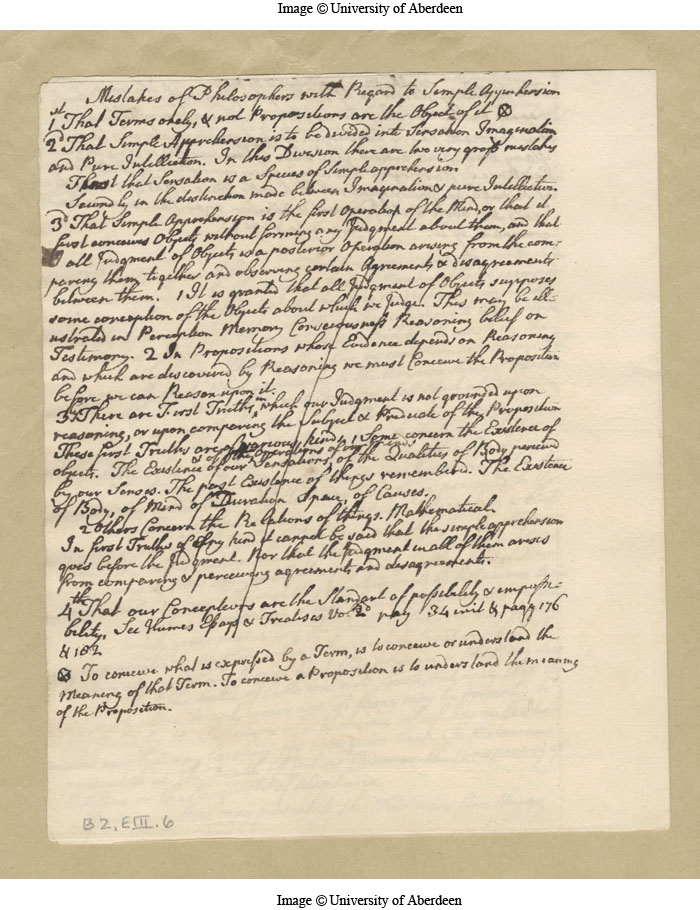 Image © University of Aberdeen
Mistakes of Philosophers with Regard to Simple Apprehension
1st That Terms onely, & not Propositions are the Objects of it ⊗
2d That Simple Apprehension is to be divided into Sensation Imagination
and Pure Intellection. In this Division there are two very gross mistakes
First that Sensation is a Species of Simple apprehension
Secondly in the distinction made between Imagination & pure Intellection
3d That Simple Apprehension is the first Operation of the Mind, or that it
first conceives Objects without forming any Judgment about them, and that
all Judgment of Objects is a posterior Operation arising from the com-
paring them together and observing certain Agreements & disagreements
between them. 1 It is granted that all Judgment of Objects supposes
some conception of the Objects about which we Judge. This may be ill-
ustrated in Perception Memory Consciousness Reasoning belief on
Testimony. 2 In Propositions whose Evidence depends on Reasoning
and which are discovered by Reasoning we must Conceive the Proposition
before we can Reason upon it.
3 There are First Truths in which our Judgment is not grounded upon
reasoning, or upon comparing the Subject & Predicate of the Proposition
These first Truths are of various kinds 1 Some concern the Existence of
objects. The Existence of our Sensations, of the operations of our minds of the Qualities of Body perceived
by our Senses. The past Existence of things remembered. The Existence
of Body, of Mind of Duration Space, of Causes.
2 Others Concern the Relations of things. Mathematical.
In first Truths of any kind it cannot be said that the simple apprehension
goes before the Judgment. Nor that the Judgment in all of them arises
from comparing & perceiving agreements and disagreements.
4th That our Conceptions are the Standart of possibility & impossi-
bility, See Humes Essays & Treatises Vol 2d pag 134 init & pag 176
& 182
⊗ To conceive what is expressed by a Term, is to conceive or understand the
Meaning of that Term. To conceive a Proposition is to understand the meaning
of the Proposition.
B2.EIII.6
Image © University of Aberdeen